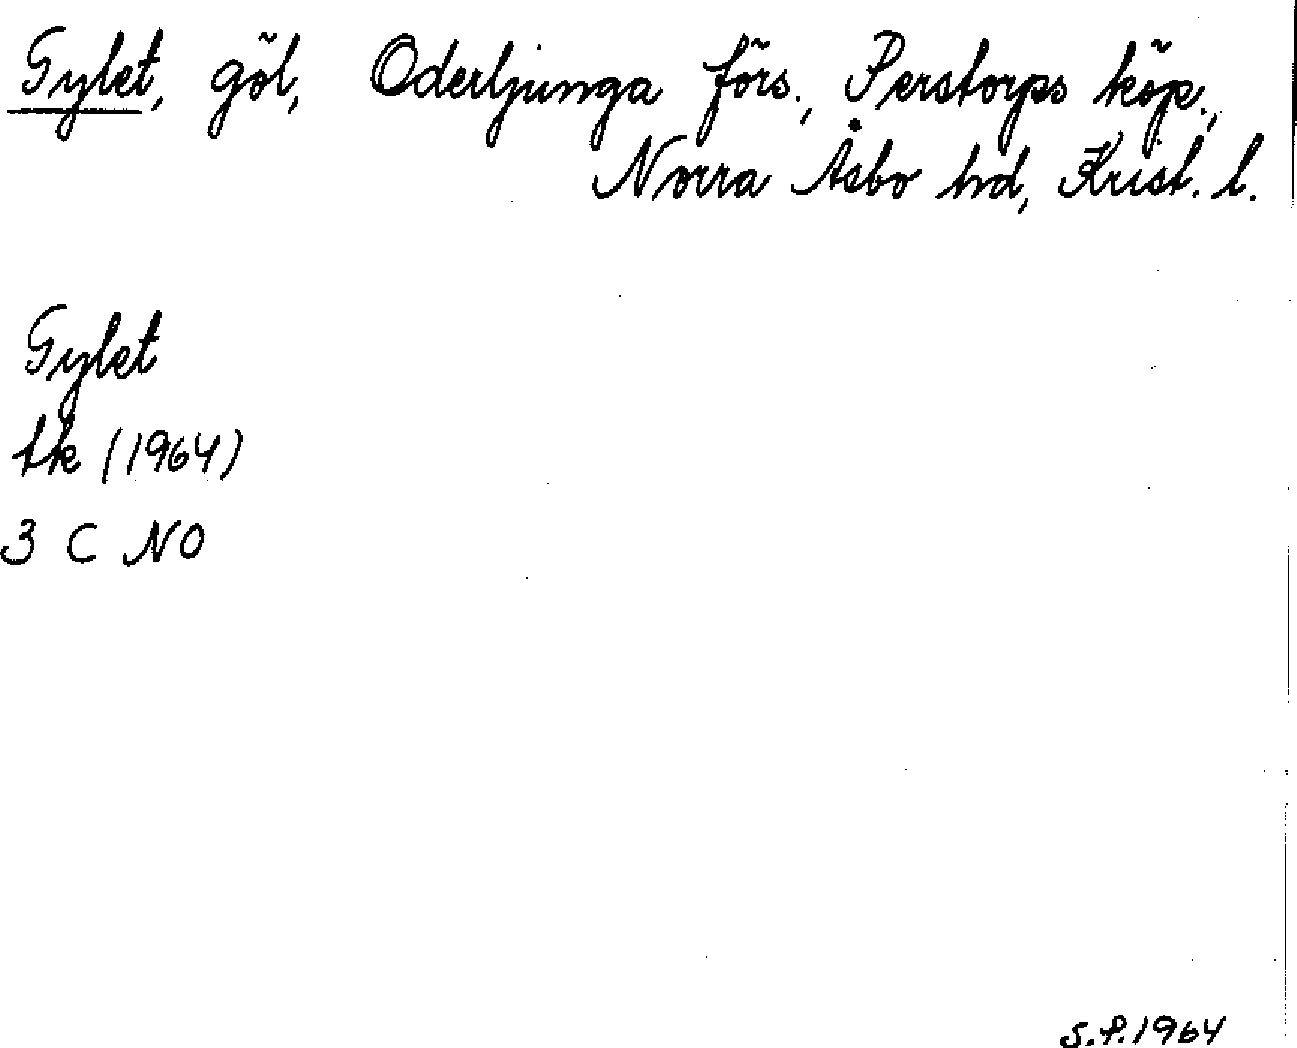 Gylet, göl, Oderljunga förs., Perstorps köp.,
Norra Åsbo hd, Krist. l.
Gylet
tk (1964)
3 C NO
S.P.1964